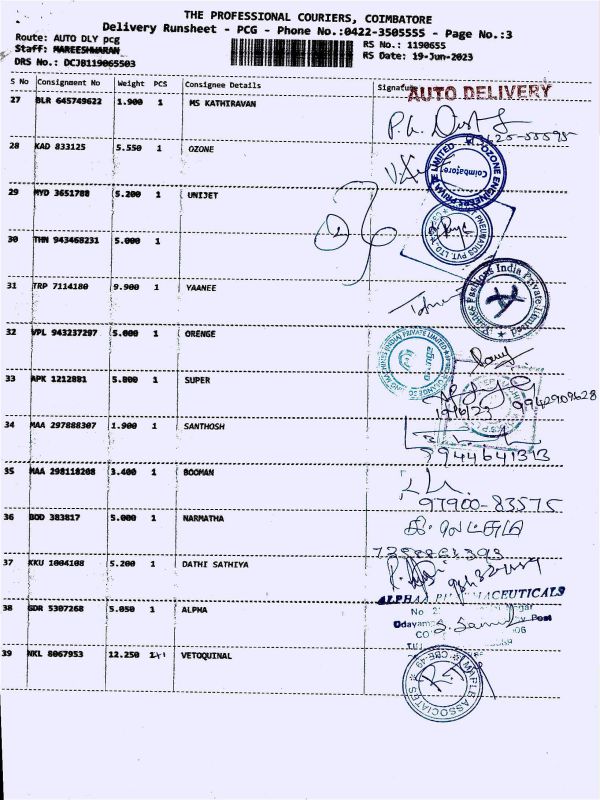 THE PROFESSIONAL COURIERS, COIMBATORE
Delivery Runsheet - PCG - Phone No.:0422-3505555 - Page No.:3
Route: AUTO DLY pcg RS No.: 1190655
Staff: MAREESHWARAN RS Date: 19-Jun-2023
DRS No.: DCJB119065503
S No Consignment No Weight PCS Consignee Details Signature
AUTO DELIVERY
27 BLR 645749622 1.900 1 MS KATHIRAVAN
28 KAD 833125 5.550 1 OZONE
OZONE ENGINEERS PRIVATE LIMITED Coimbatore
29 MYD 3651788 5.200 1 UNIJET
PNEUMATICS PVT. LTD.
30 THN 943468231 5.000 1
31 TRP 7114180 9.900 1 YAANEE
Fashions India Private Limited
32 VPL 943237297 5.000 1 ORENGE
33 APK 1212881 5.800 1 SUPER
19/6/23 9942909628
34 MAA 297888307 1.900 1 SANTHOSH
9944641313
35 MAA 298118208 3.400 1 BOOMAN
97900-83575
36 BOD 383817 5.000 1 NARMATHA
37 KKU 1004108 5.200 1 DATHI SATHIYA
38 GDR 5307268 5.050 1 ALPHA
ALPHAA PHARMACEUTICALS
39 NKL 8067953 12.250 1+1 VETOQUINAL
MAPLE ASSOCIATES CBE-49